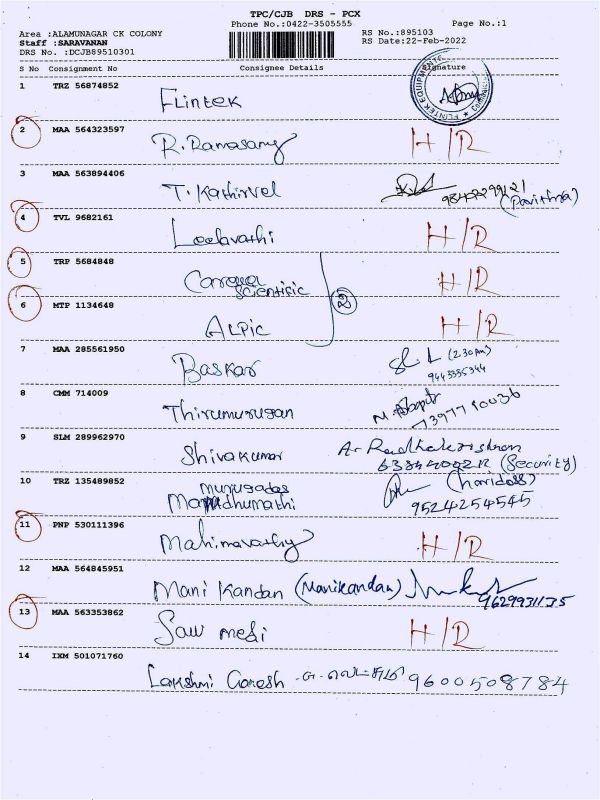 TPC/CJB DRS - PCX
Phone No.:0422-3505555
Page No.:1
Area :ALAMUNAGAR CK COLONY
RS No.:895103
Staff :SARAVANAN
RS Date:22-Feb-2022
DRS No. :DCJB89510301
S No Consignment No Consignee Details Signature
1 TRZ 56874852 Flintek
FLINTEK EQUIPMENTS
2 MAA 564323597 R. Ramasamy H/R
3 MAA 563894406 T. Kathirvel (Pavithra)
4 TVL 9682161 Leelavathi H/R
5 TRP 5684848 Scientific H/R
2
6 MTP 1134648 ALPIC H/R
7 MAA 285561950 Baskar (2.30pm)
9443335344
8 CMM 714009 Thirumurugan
9 SLM 289962970 Shivakumar A. Radhakrishnan
(Security)
10 TRZ 135489852 murugadas (haridoss)
9524254545
11 PNP 530111396 Mahimavathy H/R
12 MAA 564845951 Mani Kandan (Manikandan)
9629931135
13 MAA 563353862 Saw medi H/R
14 IXM 501071760 Lakshmi Ganesh 9600508784